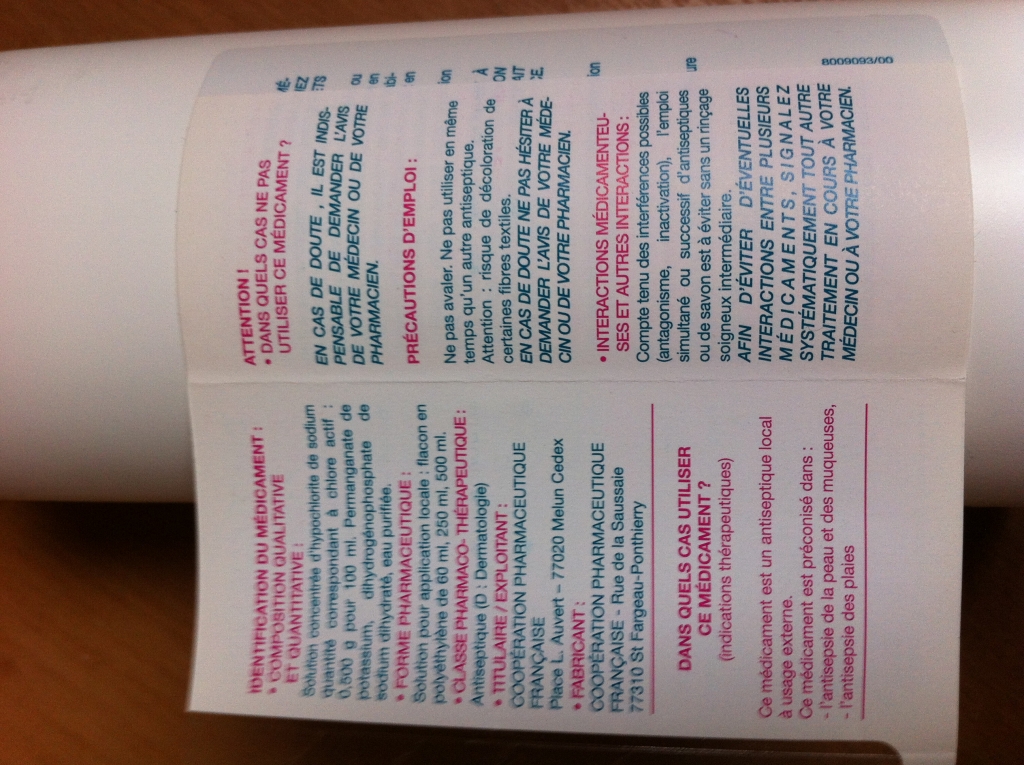 IDENTIFICATION DU MÉDICAMENT :
• COMPOSITION QUALITATIVE
ET QUANTITATIVE :
Solution concentrée d'hypochlorite de sodium
quantité correspondant à chlore actif :
0,500 g pour 100 ml, Permanganate de
potassium, dihydrogénophosphate de
sodium dihydraté, eau purifiée.
• FORME PHARMACEUTIQUE :
Solution pour application locale : flacon en
polyéthylène de 60 ml, 250 ml, 500 ml.
• CLASSE PHARMACO- THÉRAPEUTIQUE :
Antiseptique (D : Dermatologie)
• TITULAIRE / EXPLOITANT :
COOPÉRATION PHARMACEUTIQUE
FRANÇAISE
Place L. Auvert – 77020 Melun Cedex
• FABRICANT :
COOPÉRATION PHARMACEUTIQUE
FRANÇAISE - Rue de la Saussaie
77310 St Fargeau-Ponthierry
DANS QUELS CAS UTILISER
CE MÉDICAMENT ?
(indications thérapeutiques)
Ce médicament est un antiseptique local
à usage externe.
Ce médicament est préconisé dans :
- l'antisepsie de la peau et des muqueuses,
- l'antisepsie des plaies
ATTENTION !
• DANS QUELS CAS NE PAS
UTILISER CE MÉDICAMENT ?
EN CAS DE DOUTE , IL EST INDIS-
PENSABLE DE DEMANDER L'AVIS
DE VOTRE MÉDECIN OU DE VOTRE
PHARMACIEN.
PRÉCAUTIONS D'EMPLOI :
Ne pas avaler. Ne pas utiliser en même
temps qu'un autre antiseptique.
Attention : risque de décoloration de
certaines fibres textiles.
EN CAS DE DOUTE NE PAS HÉSITER À
DEMANDER L'AVIS DE VOTRE MÉDE-
CIN OU DE VOTRE PHARMACIEN.
• INTERACTIONS MÉDICAMENTEU-
SES ET AUTRES INTERACTIONS :
Compte tenu des interférences possibles
(antagonisme, inactivation), l'emploi
simultané ou successif d'antiseptiques
ou de savon est à éviter sans un rinçage
soigneux intermédiaire.
AFIN D'ÉVITER D'ÉVENTUELLES
INTERACTIONS ENTRE PLUSIEURS
MÉDICAMENTS, SIGNALEZ
SYSTÉMATIQUEMENT TOUT AUTRE
TRAITEMENT EN COURS À VOTRE
MÉDECIN OU À VOTRE PHARMACIEN.
8009093/00